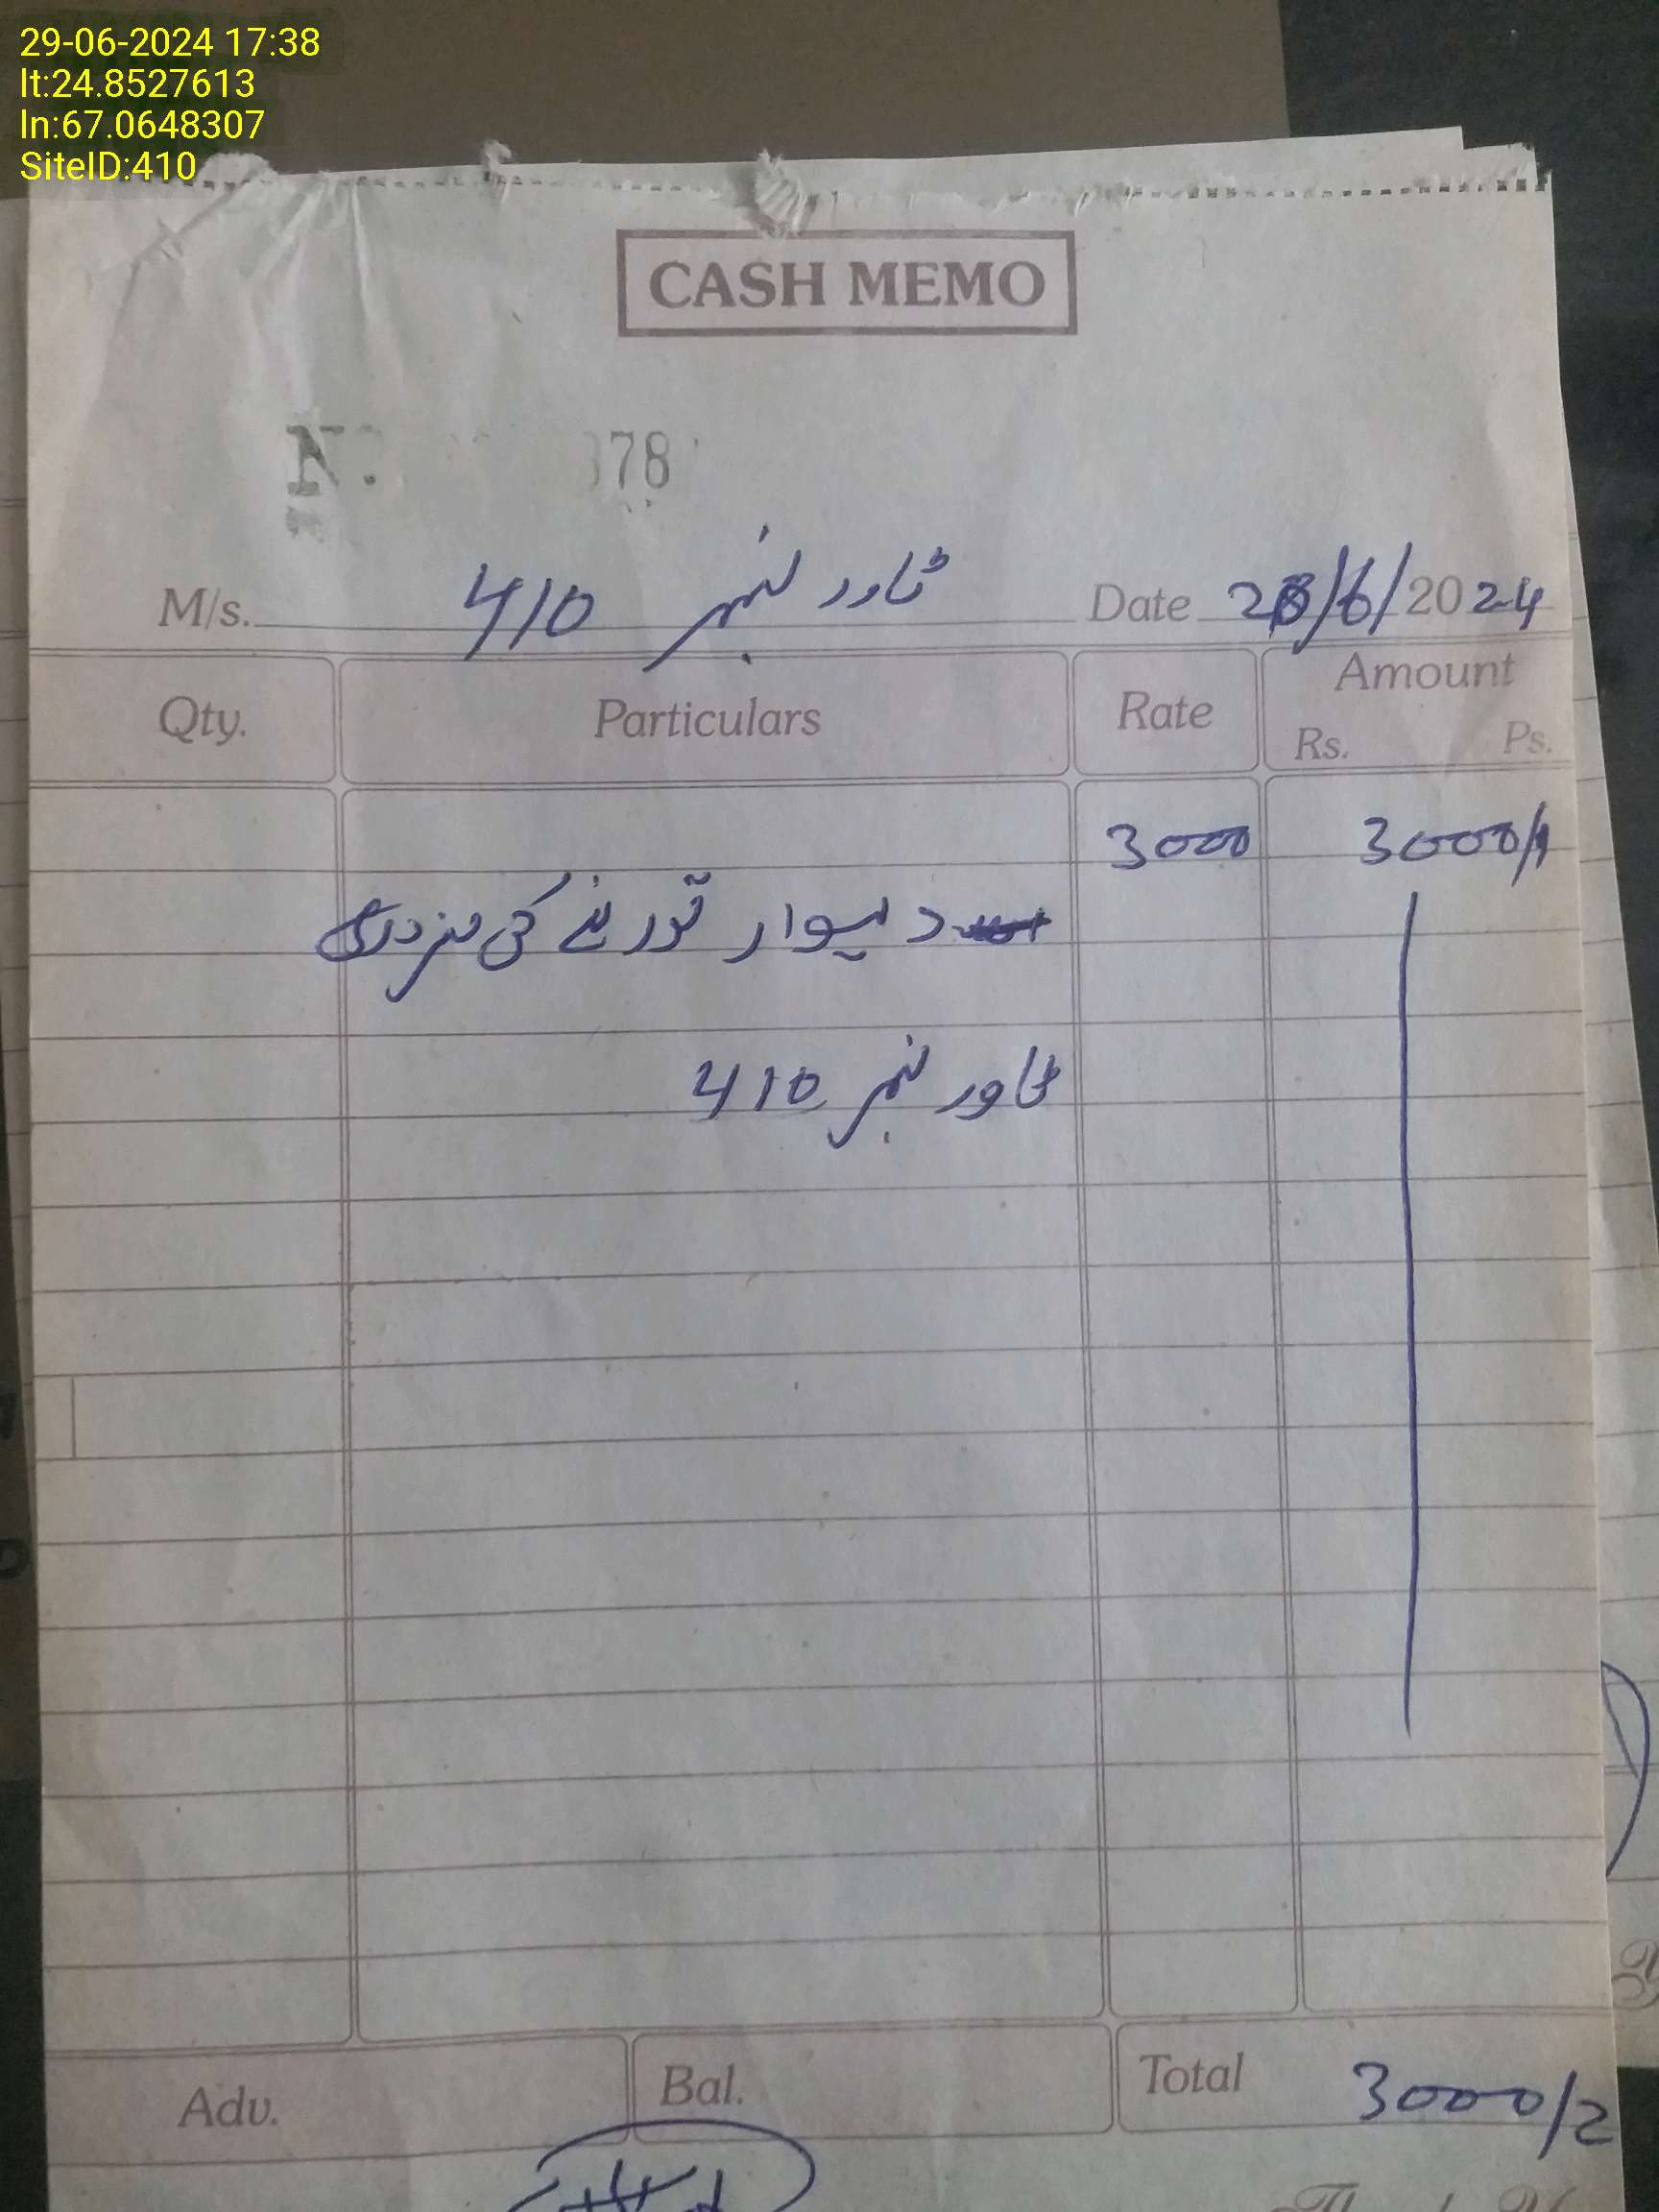 29-06-2024 17:38
lt:24.8527613
ln:67.0648307
SiteID:410
CASH MEMO
N. 378
M/s. ٹاور نمبر 410 Date 28/6/2024
Qty. Particulars Rate Amount
Rs. Ps.
3000 3000/
دیوار توڑنے کی مزدوری
ٹاور نمبر 410
Adv. Bal. Total 3000/